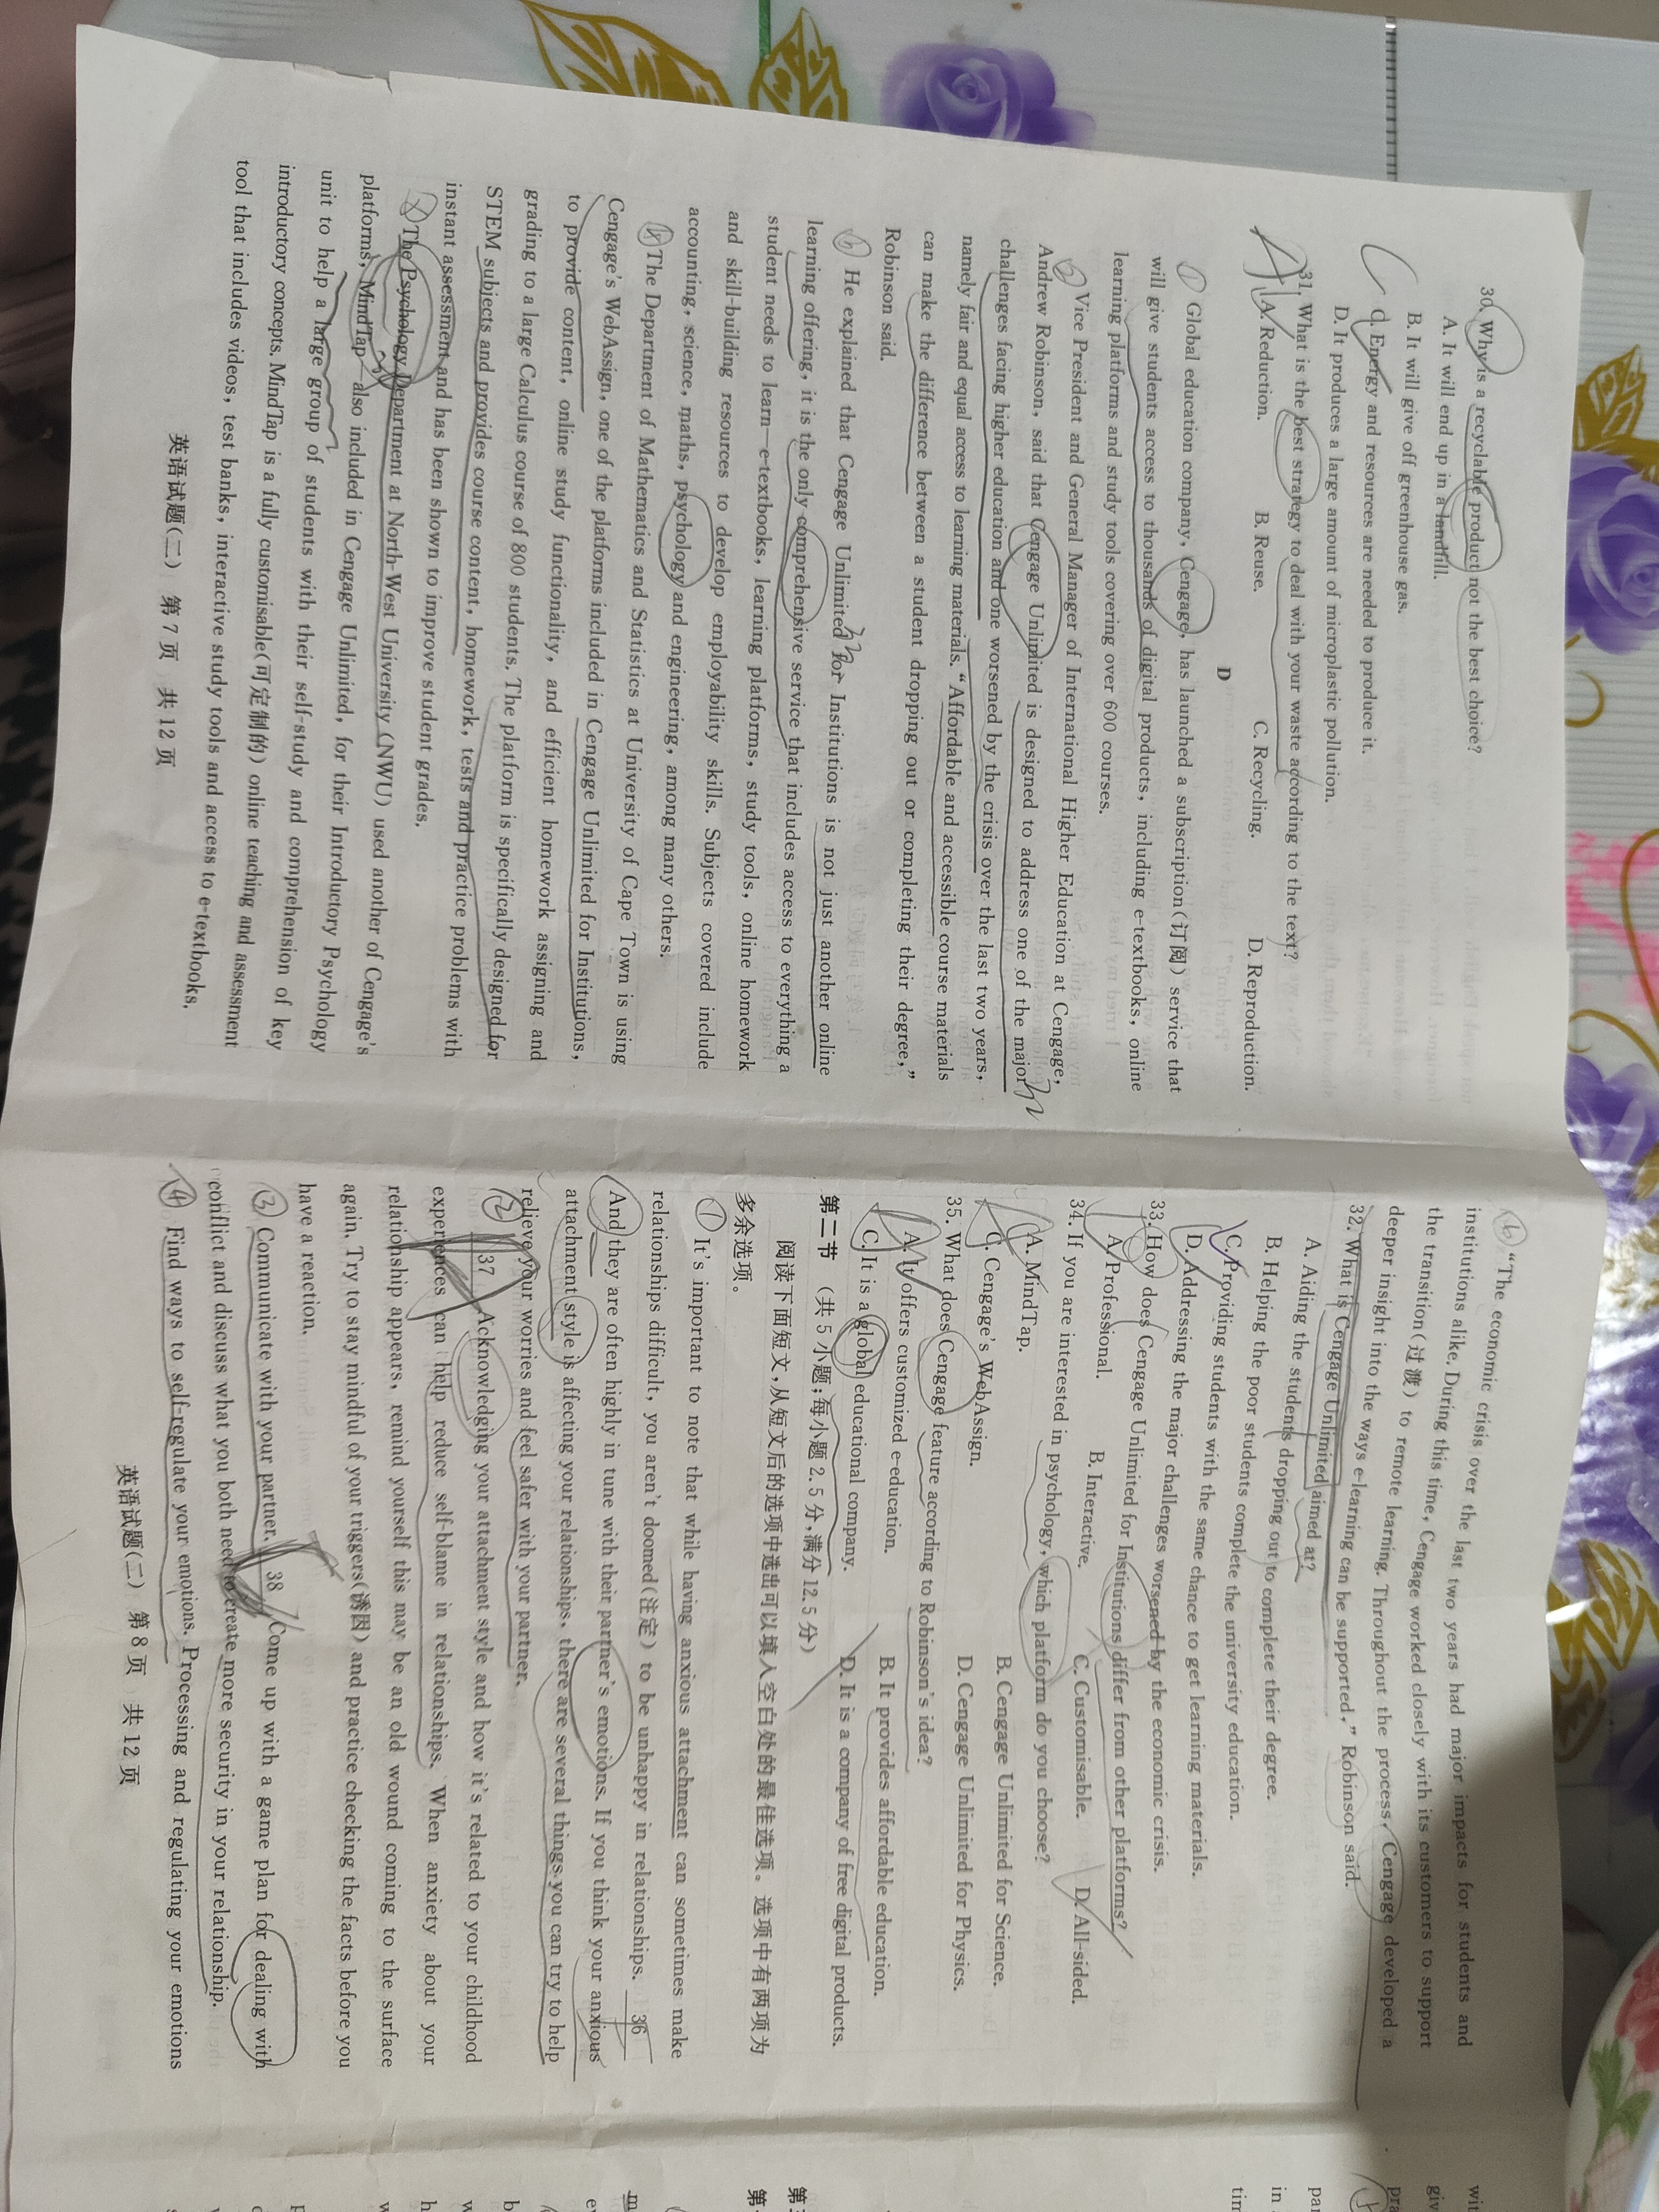 30. Why is a recyclable product not the best choice?
A. It will end up in a landfill.
B. It will give off greenhouse gas.
C. Energy and resources are needed to produce it.
D. It produces a large amount of microplastic pollution.
31. What is the best strategy to deal with your waste according to the text?
A. Reduction. B. Reuse. C. Recycling. D. Reproduction.
D
① Global education company, Cengage, has launched a subscription(订阅) service that
will give students access to thousands of digital products, including e-textbooks, online
learning platforms and study tools covering over 600 courses.
② Vice President and General Manager of International Higher Education at Cengage,
Andrew Robinson, said that Cengage Unlimited is designed to address one of the major
challenges facing higher education and one worsened by the crisis over the last two years,
namely fair and equal access to learning materials. “Affordable and accessible course materials
can make the difference between a student dropping out or completing their degree,”
Robinson said.
He explained that Cengage Unlimited for Institutions is not just another online
learning offering, it is the only comprehensive service that includes access to everything a
student needs to learn—e-textbooks, learning platforms, study tools, online homework
and skill-building resources to develop employability skills. Subjects covered include
accounting, science, maths, psychology and engineering, among many others.
The Department of Mathematics and Statistics at University of Cape Town is using
Cengage's WebAssign, one of the platforms included in Cengage Unlimited for Institutions,
to provide content, online study functionality, and efficient homework assigning and
grading to a large Calculus course of 800 students. The platform is specifically designed for
STEM subjects and provides course content, homework, tests and practice problems with
instant assessment and has been shown to improve student grades.
The Psychology Department at North-West University (NWU) used another of Cengage's
platforms, MindTap, also included in Cengage Unlimited, for their Introductory Psychology
unit to help a large group of students with their self-study and comprehension of key
introductory concepts. MindTap is a fully customisable(可定制的) online teaching and assessment
tool that includes videos, test banks, interactive study tools and access to e-textbooks.
英语试题(二) 第7页 共12页
⑥ “The economic crisis over the last two years had major impacts for students and
institutions alike. During this time, Cengage worked closely with its customers to support
the transition(过渡) to remote learning. Throughout the process, Cengage developed a
deeper insight into the ways e-learning can be supported,” Robinson said.
32. What is Cengage Unlimited aimed at?
A. Aiding the students dropping out to complete their degree.
B. Helping the poor students complete the university education.
C. Providing students with the same chance to get learning materials.
D. Addressing the major challenges worsened by the economic crisis.
33. How does Cengage Unlimited for Institutions differ from other platforms?
A. Professional. B. Interactive. C. Customisable. D. All-sided.
34. If you are interested in psychology, which platform do you choose?
A. MindTap. B. Cengage Unlimited for Science.
C. Cengage's WebAssign. D. Cengage Unlimited for Physics.
35. What does Cengage feature according to Robinson's idea?
A. It offers customized e-education. B. It provides affordable education.
C. It is a global educational company. D. It is a company of free digital products.
第二节 (共5小题;每小题2.5分,满分12.5分)
阅读下面短文,从短文后的选项中选出可以填入空白处的最佳选项。选项中有两项为
多余选项。
① It's important to note that while having anxious attachment can sometimes make
relationships difficult, you aren't doomed(注定) to be unhappy in relationships. 36
And they are often highly in tune with their partner's emotions. If you think your anxious
attachment style is affecting your relationships, there are several things you can try to help
relieve your worries and feel safer with your partner.
② 37 Acknowledging your attachment style and how it's related to your childhood
experiences can help reduce self-blame in relationships. When anxiety about your
relationship appears, remind yourself this may be an old wound coming to the surface
again. Try to stay mindful of your triggers(诱因) and practice checking the facts before you
have a reaction.
③ Communicate with your partner. 38 Come up with a game plan for dealing with
conflict and discuss what you both need to create more security in your relationship.
④ Find ways to self-regulate your emotions. Processing and regulating your emotions
英语试题(二) 第8页 共12页